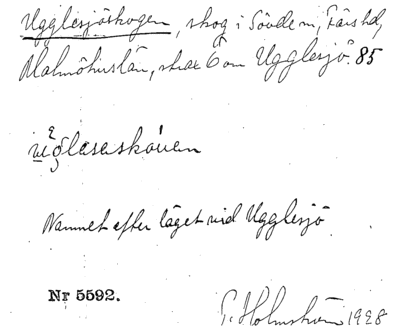 Ugglesjöskogen, skog i Sövde sn, Färs hd,
Malmöhus län, strax Ö om Ugglesjö. 85
Namnet efter läget vid Ugglesjö
Nr 5592.
G. Holmström 1928